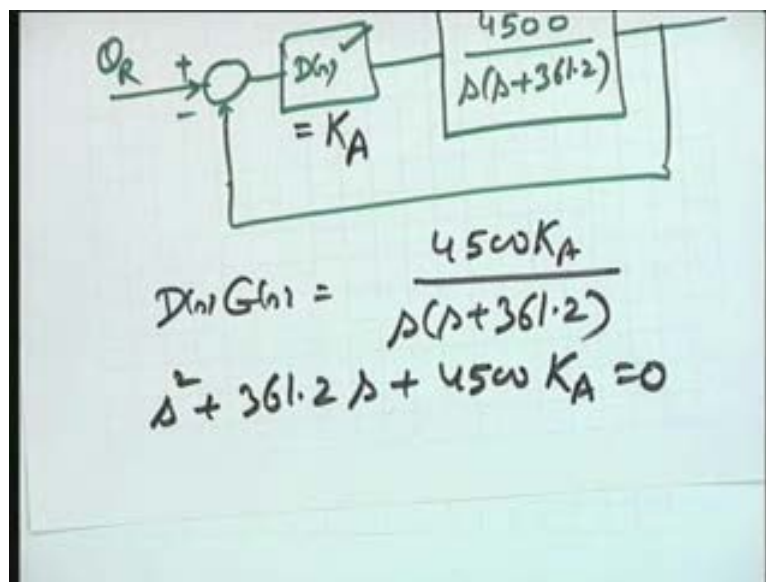 θR + - D(s) 4500
= KA s(s+361.2)
D(s) G(s) = 4500KA
s(s+361.2)
s² + 361.2 s + 4500 KA = 0